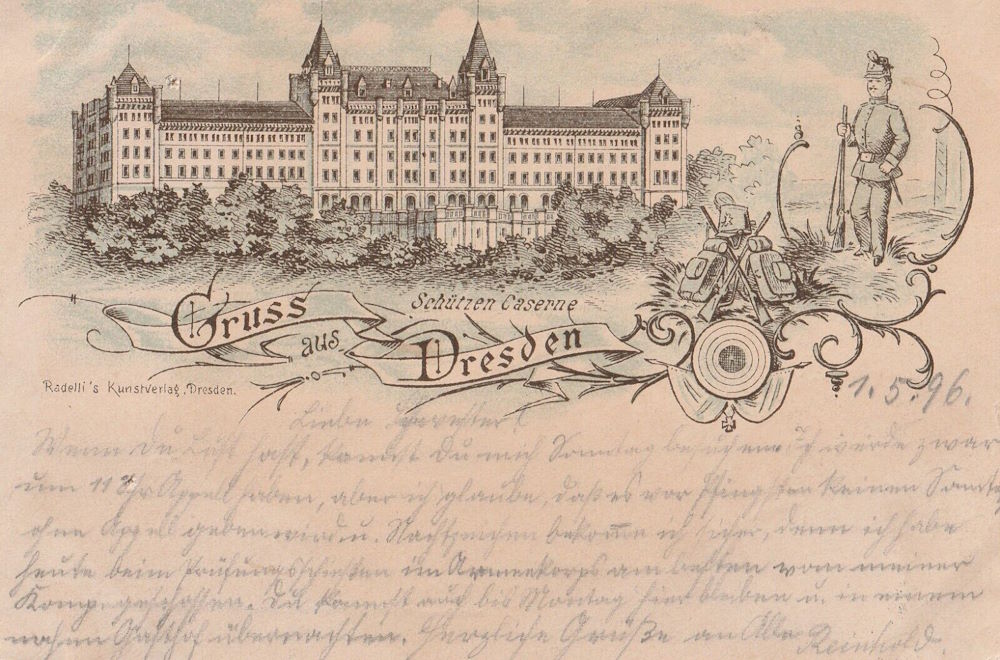 Schützen Caserne
Gruss
aus
Dresden
Radelli's Kunstverlag, Dresden.
1.5.96.
Liebe Schwester!
Wenn Du Lust hast, kannst Du mich Sonntag besuchen. Ich werde zwar
um 11 Uhr Appell haben, aber ich glaube, daß es vor Pfingsten keinen Sonntag
ohne Appell geben wird u. Nachtzeichen bekomme ich sicher, denn ich habe
heute beim Prüfungsschießen im Armeekorps am besten von meiner
Komp. geschossen. Du kannst auch bis Montag hier bleiben u. in einem
nahen Gasthof übernachten. Herzliche Grüße an Alle Reinhold.